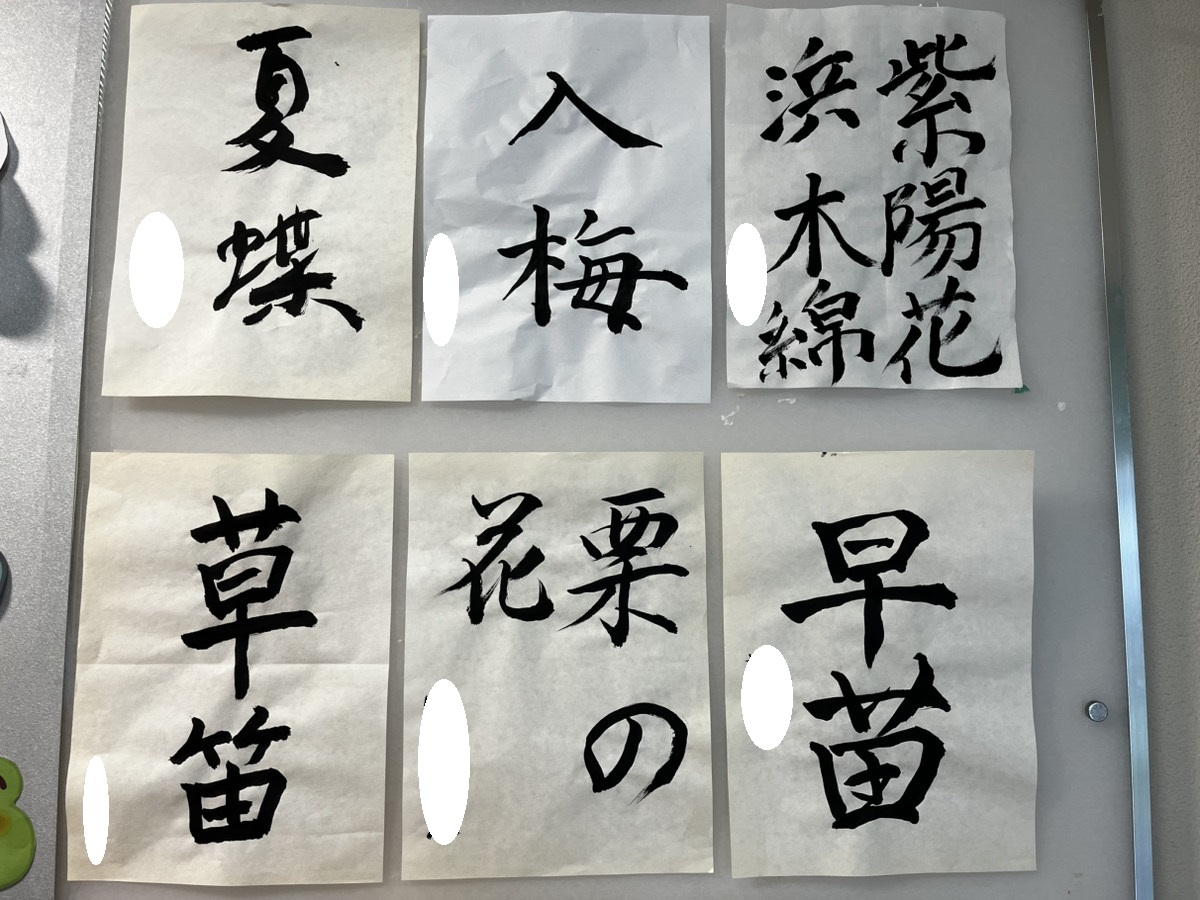 紫陽花
浜木綿
入梅
夏蝶
早苗
栗の
花
草笛